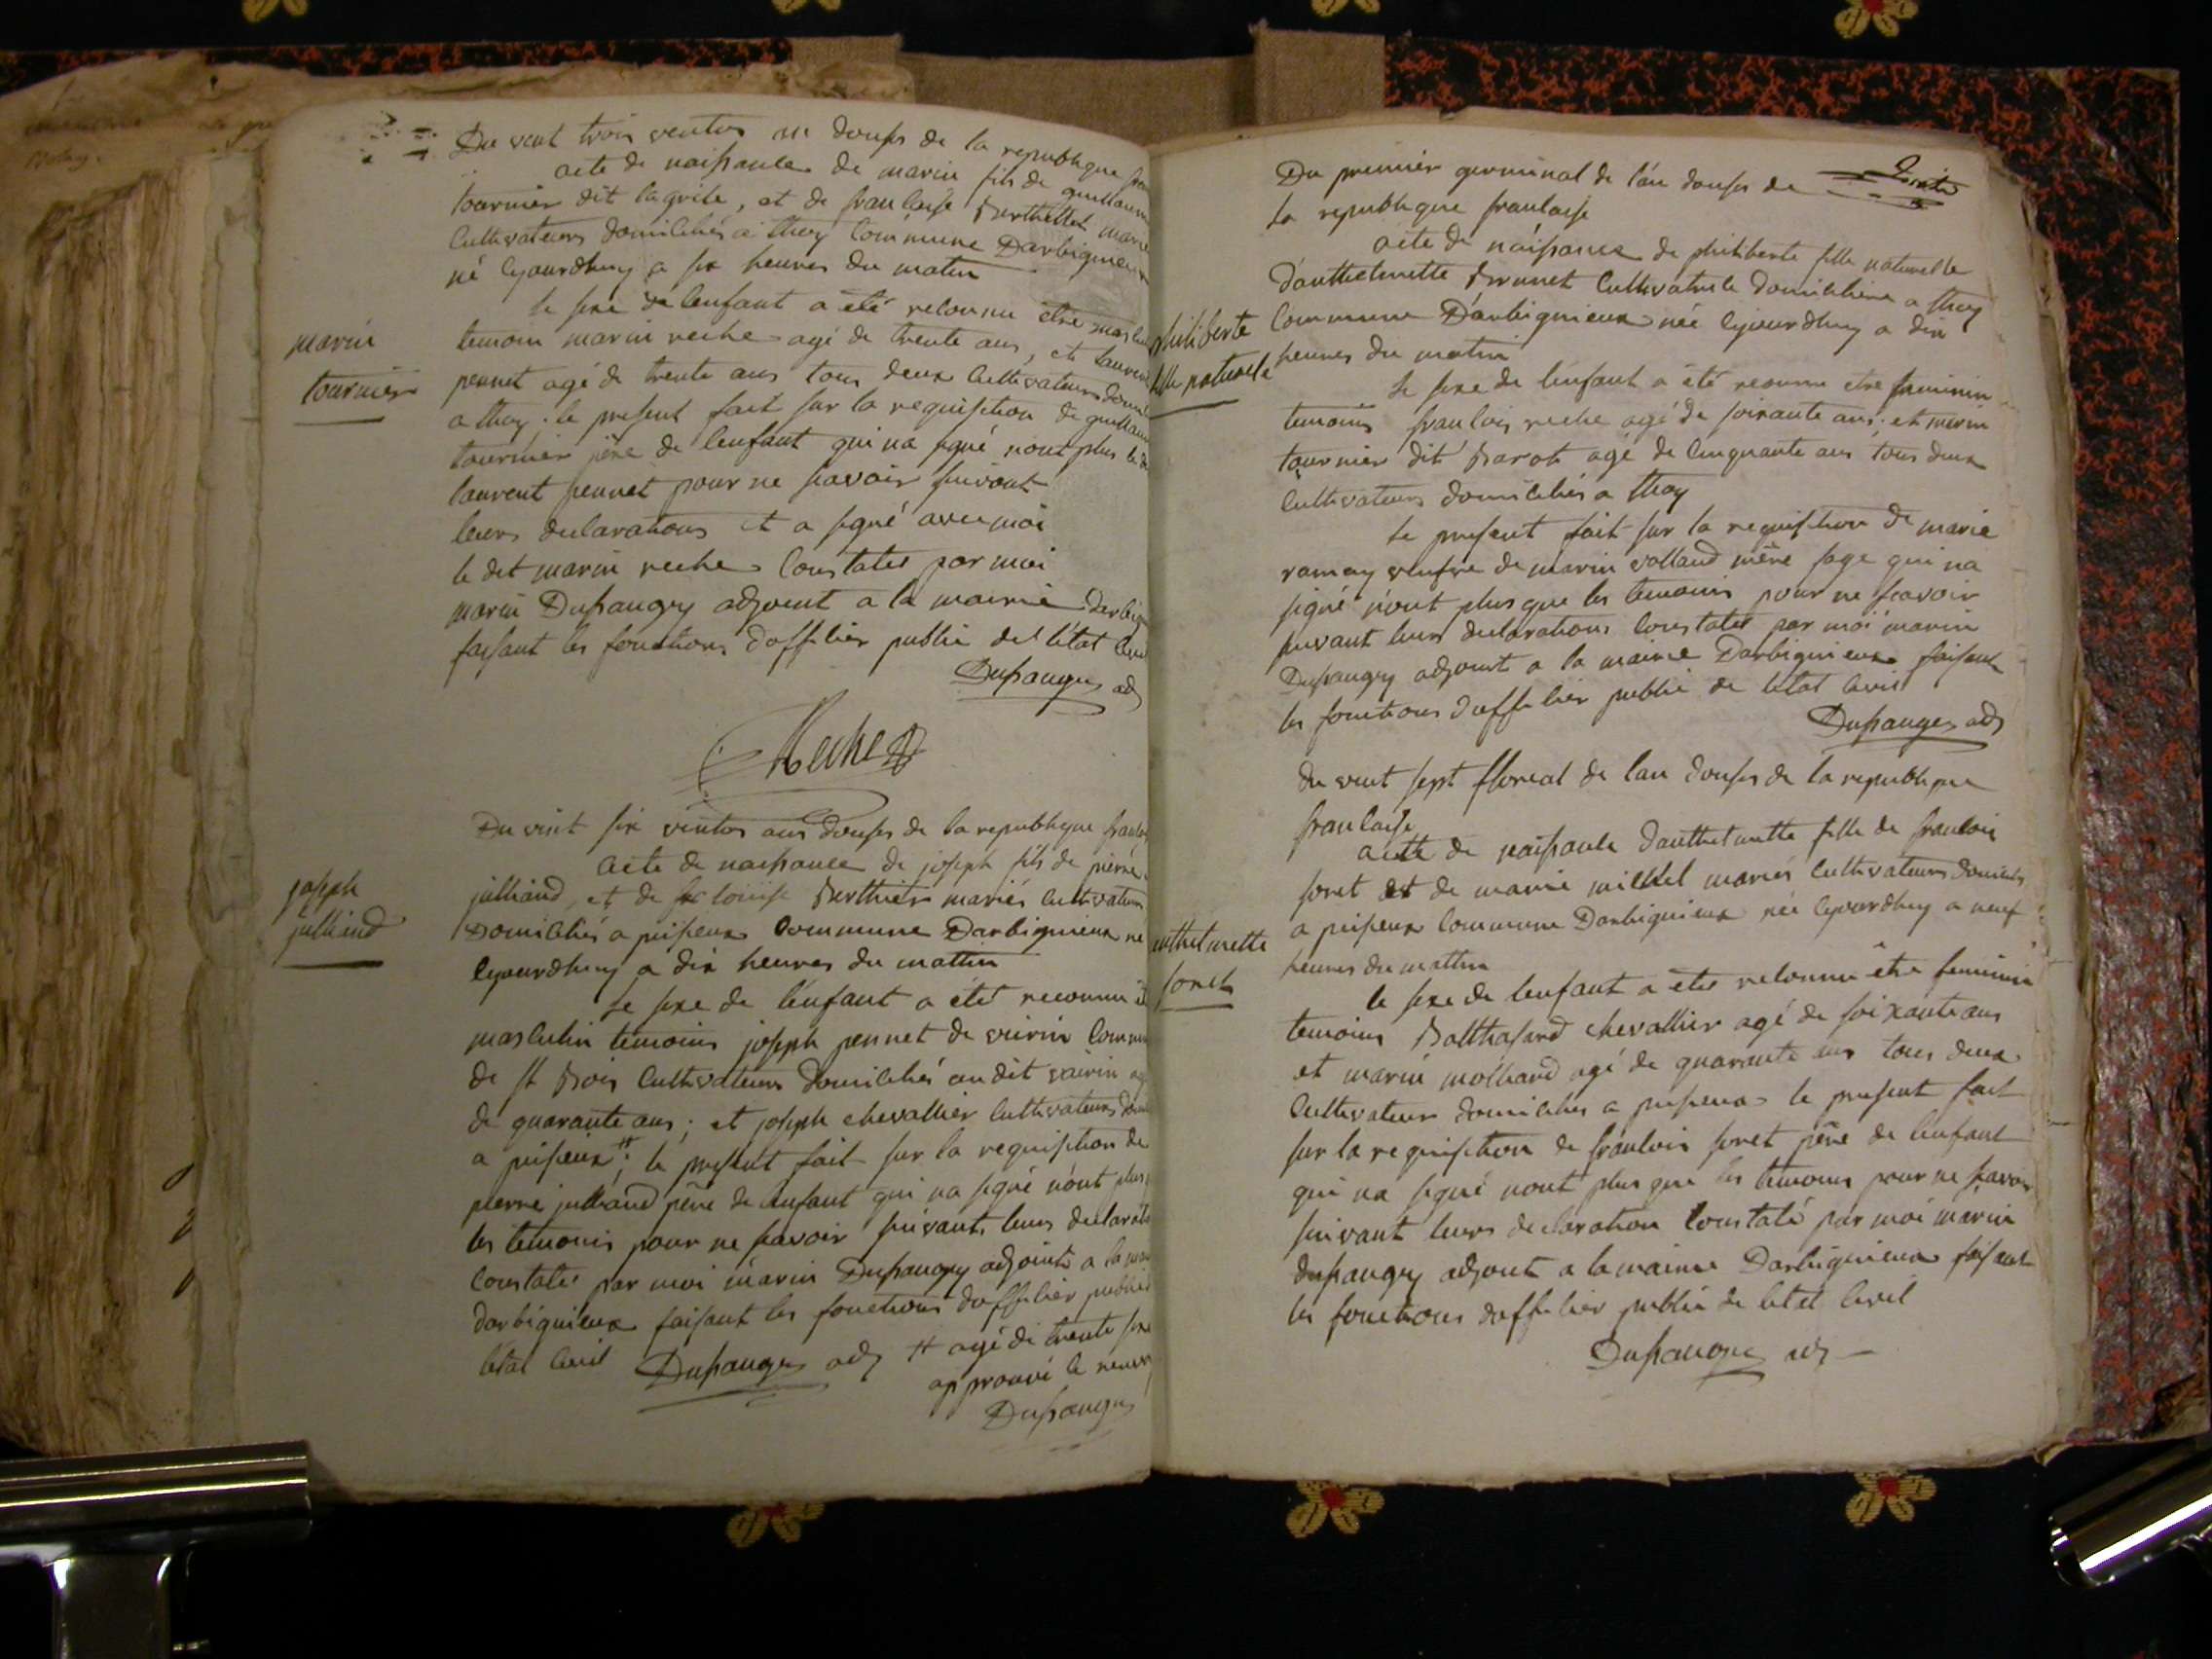 Du vent trois ventos an douses de la republique
acte de naissance de marin fils de guillaume
tournier dit la grite, et de francoise Berthettet marié
Cultivateurs domiciliés a thoy Commune Darbignieux
né cejourdhuy a six heures du matin
le sexe de lenfant a été reconnu etre masculin
marin
tournier
temoin marin reche agé de trente ans, et laurent
pennet agé de trente ans tous deux Cultivateurs
a thoy: le present fait sur la requisition de guillaume
tournier père de lenfant qui na signé nont plus le dit
laurent pennet pour ne savoir suivant
leurs declarations et a signé avec moi
le dit marin reche Constaté par moi
marin Dupaugey adjoint a la mairie
faisant les fonctions dofficier public de l'état
Dupaugey adj
Reche
Du vint six ventos ans douses de la republique
Acte de naissance de joseph fils de pierre
joseph
julliand
julliand, et de louise Berthier mariés cultivateurs
Domiciliés a peisieux Commune Darbignieux né
cejourdhuy a dix heures du mattin
le sexe de l'enfant a étét reconnu
masculin temoins joseph pennet de vuirin
de st Bois Cultivateurs Domiciliés au dit vuirin
de quarante ans; et joseph chevallier Cultivateurs
a peisieux #; le present fait sur la requisition de
pierre julliand père de lenfant qui na signé nont plus
les temoins pour ne savoir suivants leurs
Constaté par moi marin Dupaugey adjoint a la
darbignieux faisant les fonctions dofficier public
létat Civil Dupaugey adj # agé de trente
approuvé le
Dupaugey
Du premier germinal de l'an douses de
la republique francaise
acte de naissance de philiberte fille naturelle
d'anthelmette Brunet Cultivatrice domiciliée a thoy
philiberte
fille naturelle
Commune D'arbignieux née cejourdhuy a dix
heures du matin
le sexe de lenfant a été reconnu etre feminin
temoins francois reche agé de soixante ans; et marin
tournier dit Barot agé de Cinquante ans tous deux
Cultivateurs domiciliés a thoy
le present fait sur la requisition de marie
ramay veufve de marin volland mère sage qui na
signé n'ont plus que les temoins pour ne savoir
suivant leurs declarations Constaté par moi marin
Dupaugey adjoint a la mairie Darbignieux faisant
les fonctions dofficier public de létat Civil
Dupaugey adj
du vent sept floreal de lan douses de la republique
francaise
acte de naissance danthelmette fille de francois
foret et de marie milliet mariés Cultivateurs domiciliés
a peisieux Commune Darbignieux née cejourdhuy a neuf
anthelmette
foret
heures du mattin
le sexe de lenfant a etés reconnu être feminin
temoins Balthasard chevallier agé de soixante ans
et marin molliard agé de quarante ans tous deux
Cultivateur domiciliés a peisieux le present fait
sur la requisition de francois foret père de lenfant
qui na signé nont plus que les temoins pour ne savoir
suivant leurs declaration Constaté par moi marin
dupaugey adjoint a la mairie Darbignieux faisant
les fonctions dofficier public de létat Civil
Dupaugey adj